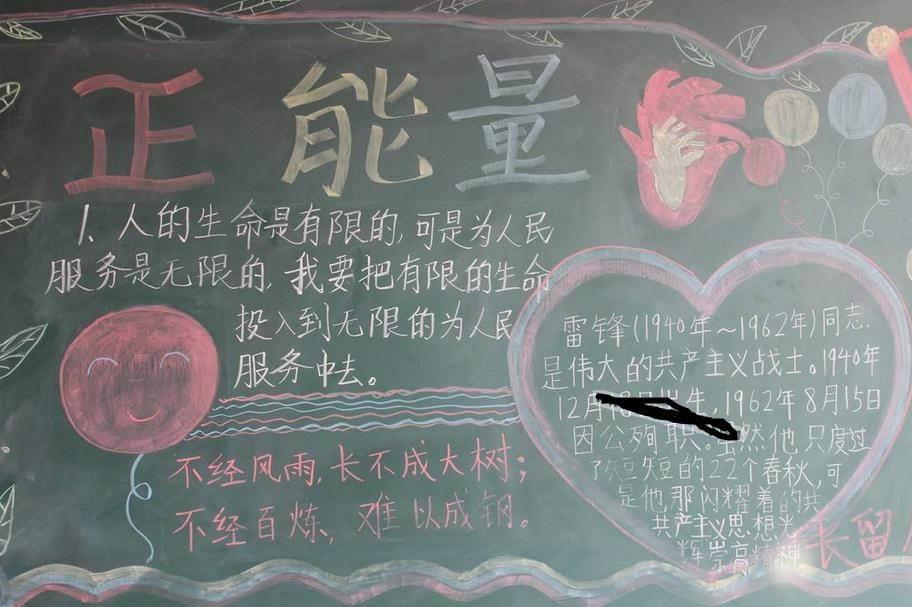 正能量
1、人的生命是有限的,可是为人民
服务是无限的,我要把有限的生命
投入到无限的为人民
服务中去。
不经风雨,长不成大树;
不经百炼,难以成钢。
雷锋(1940年~1962年)同志.
是伟大的共产主义战士。1940年
12月 1962年8月15日
因公殉职。 然他只度过
了短短的22个春秋,可
是他那闪耀着的共
共产主义思想光
辉崇高精神
长留